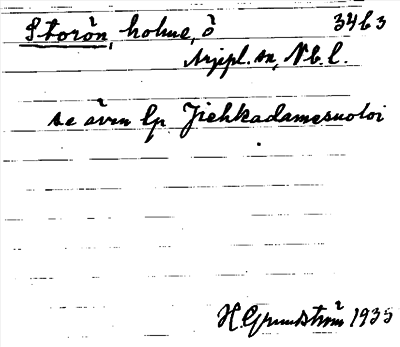 Storön, holme, ö 34b3
Arjepl. sn, Nb. l.
se även lp. Jiehkadamesuoloi
H Grundström 1935